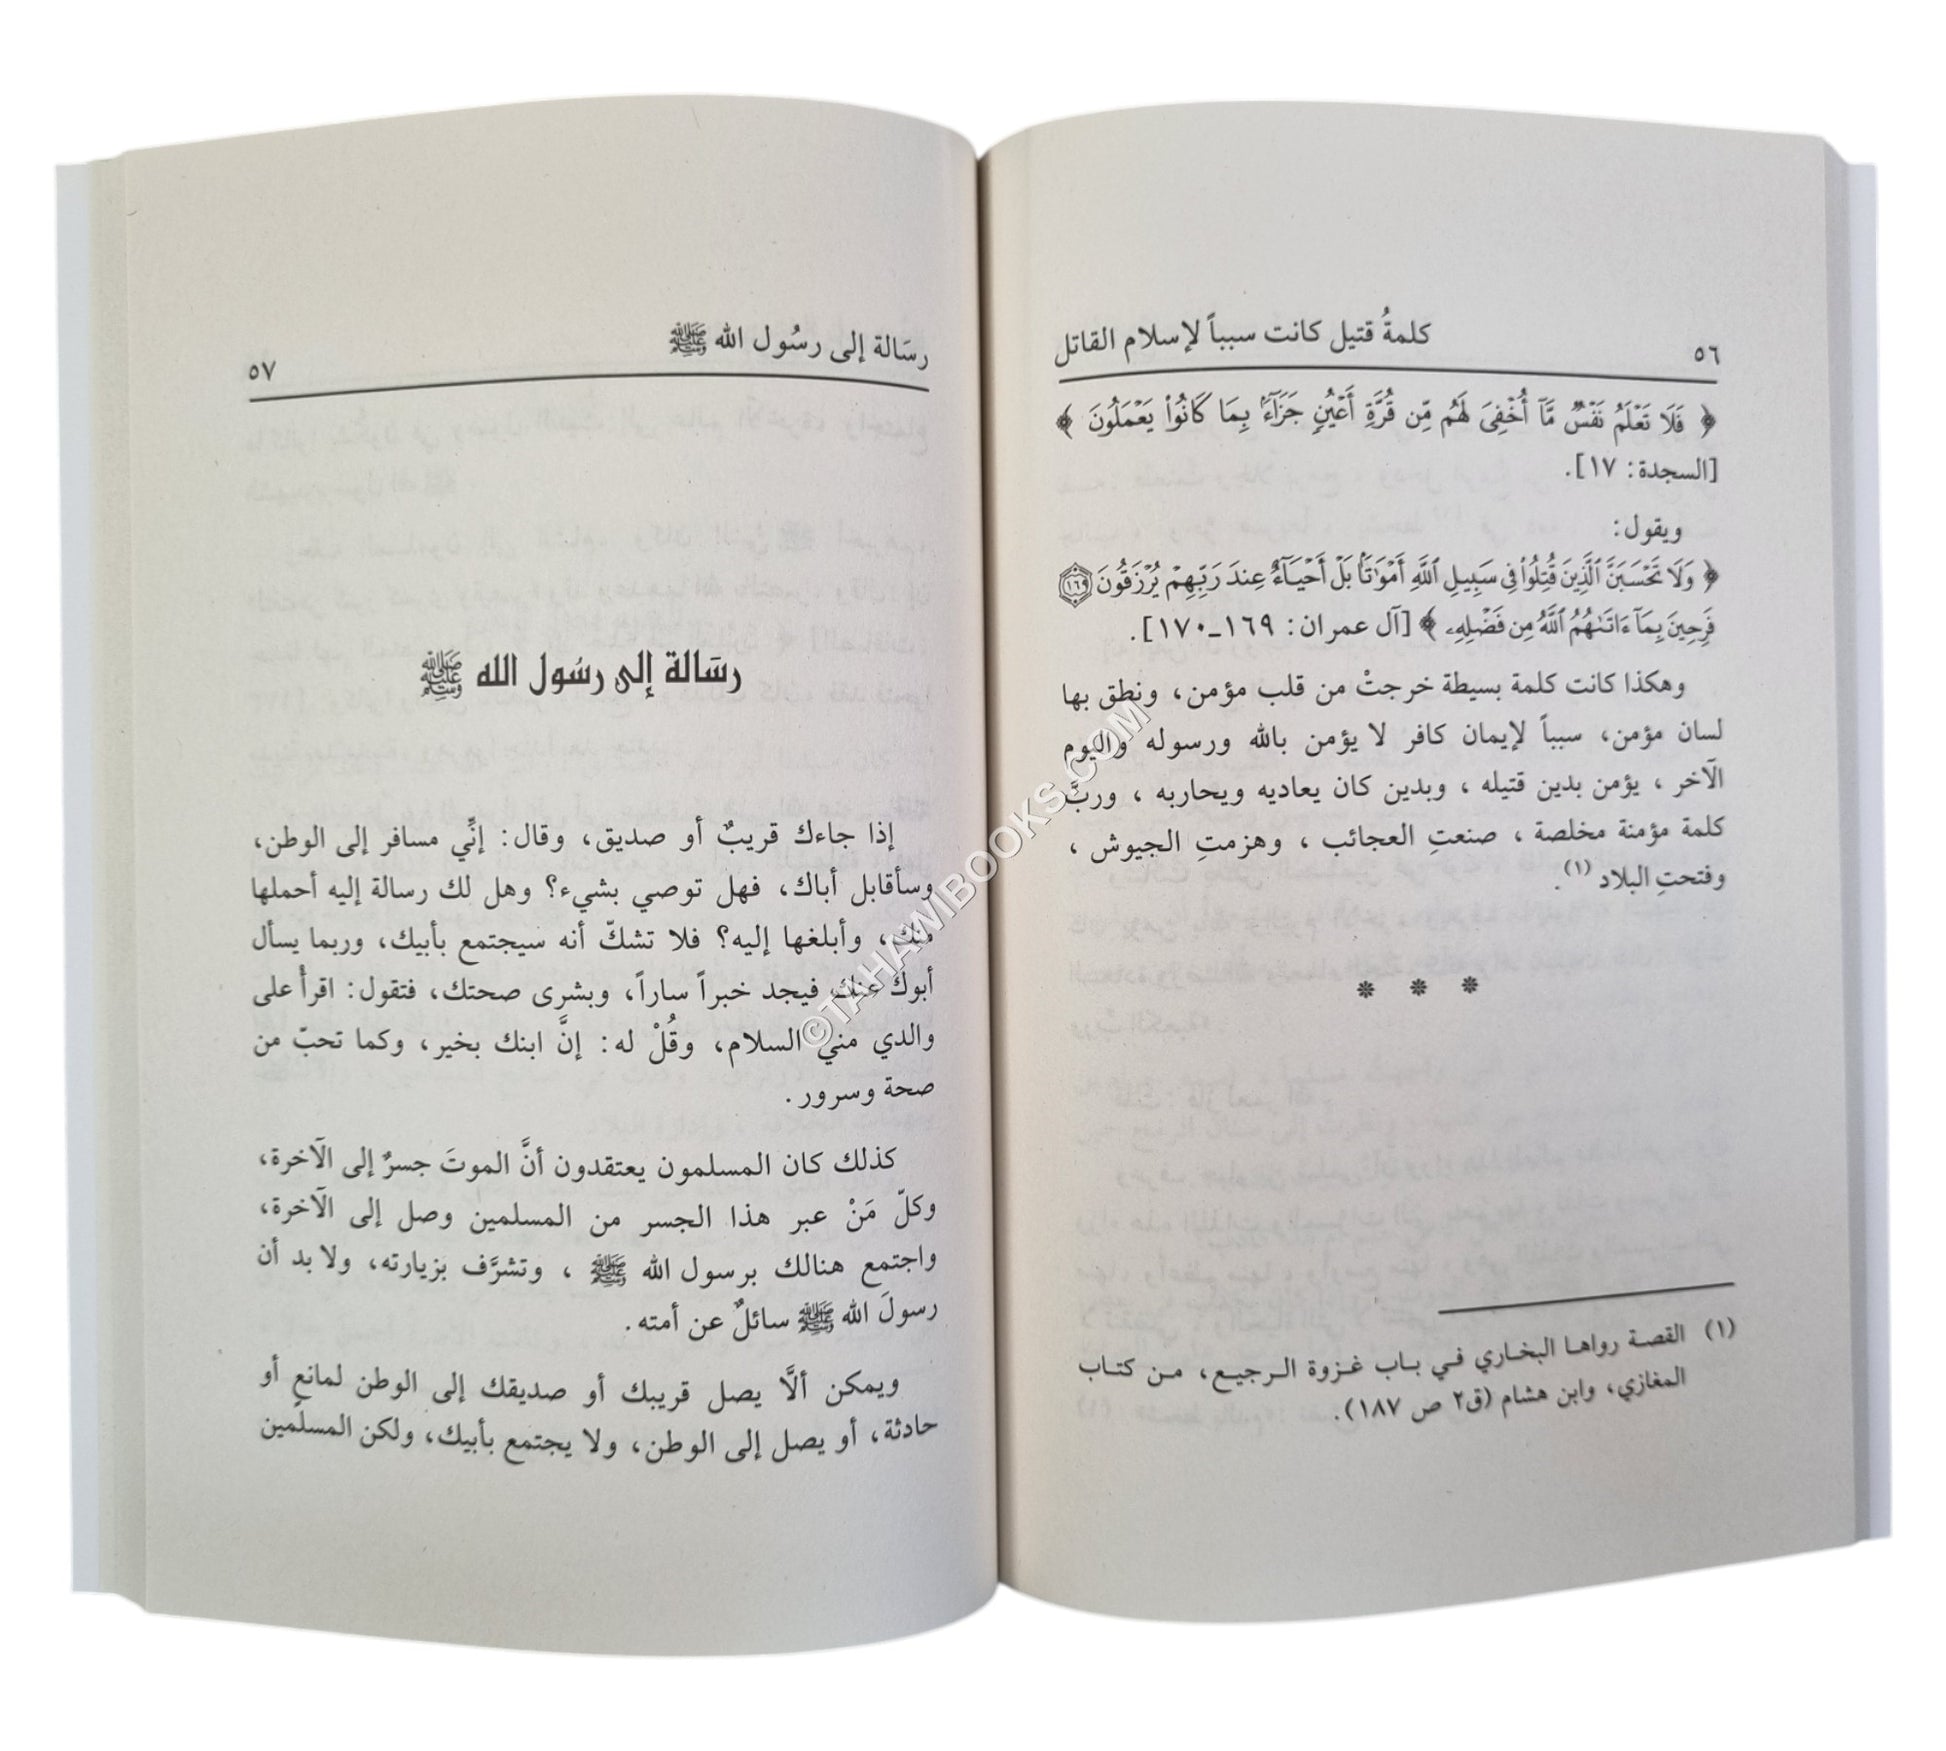 ٥٦
كلمةُ قتيل كانت سبباً لإسلام القاتل
﴿ فَلَا تَعْلَمُ نَفْسٌ مَّآ أُخْفِىَ لَهُم مِّن قُرَّةِ أَعْيُنٍ جَزَآءًۢ بِمَا كَانُوا۟ يَعْمَلُونَ ﴾
[السجدة: ١٧].
ويقول:
﴿ وَلَا تَحْسَبَنَّ ٱلَّذِينَ قُتِلُوا۟ فِى سَبِيلِ ٱللَّهِ أَمْوَٰتًۢا بَلْ أَحْيَآءٌ عِندَ رَبِّهِمْ يُرْزَقُونَ ١٦٩
فَرِحِينَ بِمَآ ءَاتَىٰهُمُ ٱللَّهُ مِن فَضْلِهِۦ ﴾ [آل عمران: ١٦٩ـ١٧٠].
وهكذا كانت كلمة بسيطة خرجتْ من قلب مؤمن، ونطق بها
لسان مؤمن، سبباً لإيمان كافر لا يؤمن بالله ورسوله واليوم
الآخر ، يؤمن بدين قتيله ، وبدين كان يعاديه ويحاربه ، وربَّ
كلمة مؤمنة مخلصة ، صنعتِ العجائب ، وهزمتِ الجيوش ،
وفتحتِ البلاد (١).
* * *
(١) القصة رواها البخاري في باب غزوة الرجيع، من كتاب
المغازي، وابن هشام (ق٢ ص ١٨٧).
رسَالة إلى رسُول الله ﷺ
٥٧
رسَالة إلى رسُول الله ﷺ
إذا جاءك قريبٌ أو صديق، وقال: إنِّي مسافر إلى الوطن،
وسأقابل أباك، فهل توصي بشيء؟ وهل لك رسالة إليه أحملها
منك، وأبلغها إليه؟ فلا تشكّ أنه سيجتمع بأبيك، وربما يسأل
أبوك عنك فيجد خبراً ساراً، وبشرى صحتك، فتقول: اقرأْ على
والدي مني السلام، وقُلْ له: إنَّ ابنك بخير، وكما تحبّ من
صحة وسرور.
كذلك كان المسلمون يعتقدون أنَّ الموتَ جسرٌ إلى الآخرة،
وكلّ مَنْ عبر هذا الجسر من المسلمين وصل إلى الآخرة،
واجتمع هنالك برسول الله ﷺ ، وتشرَّف بزيارته، ولا بد أن
رسولَ الله ﷺ سائلٌ عن أمته.
ويمكن ألَّا يصل قريبك أو صديقك إلى الوطن لمانعٍ أو
حادثة، أو يصل إلى الوطن، ولا يجتمع بأبيك، ولكن المسلمين
©TAHAWIBOOKS.COM